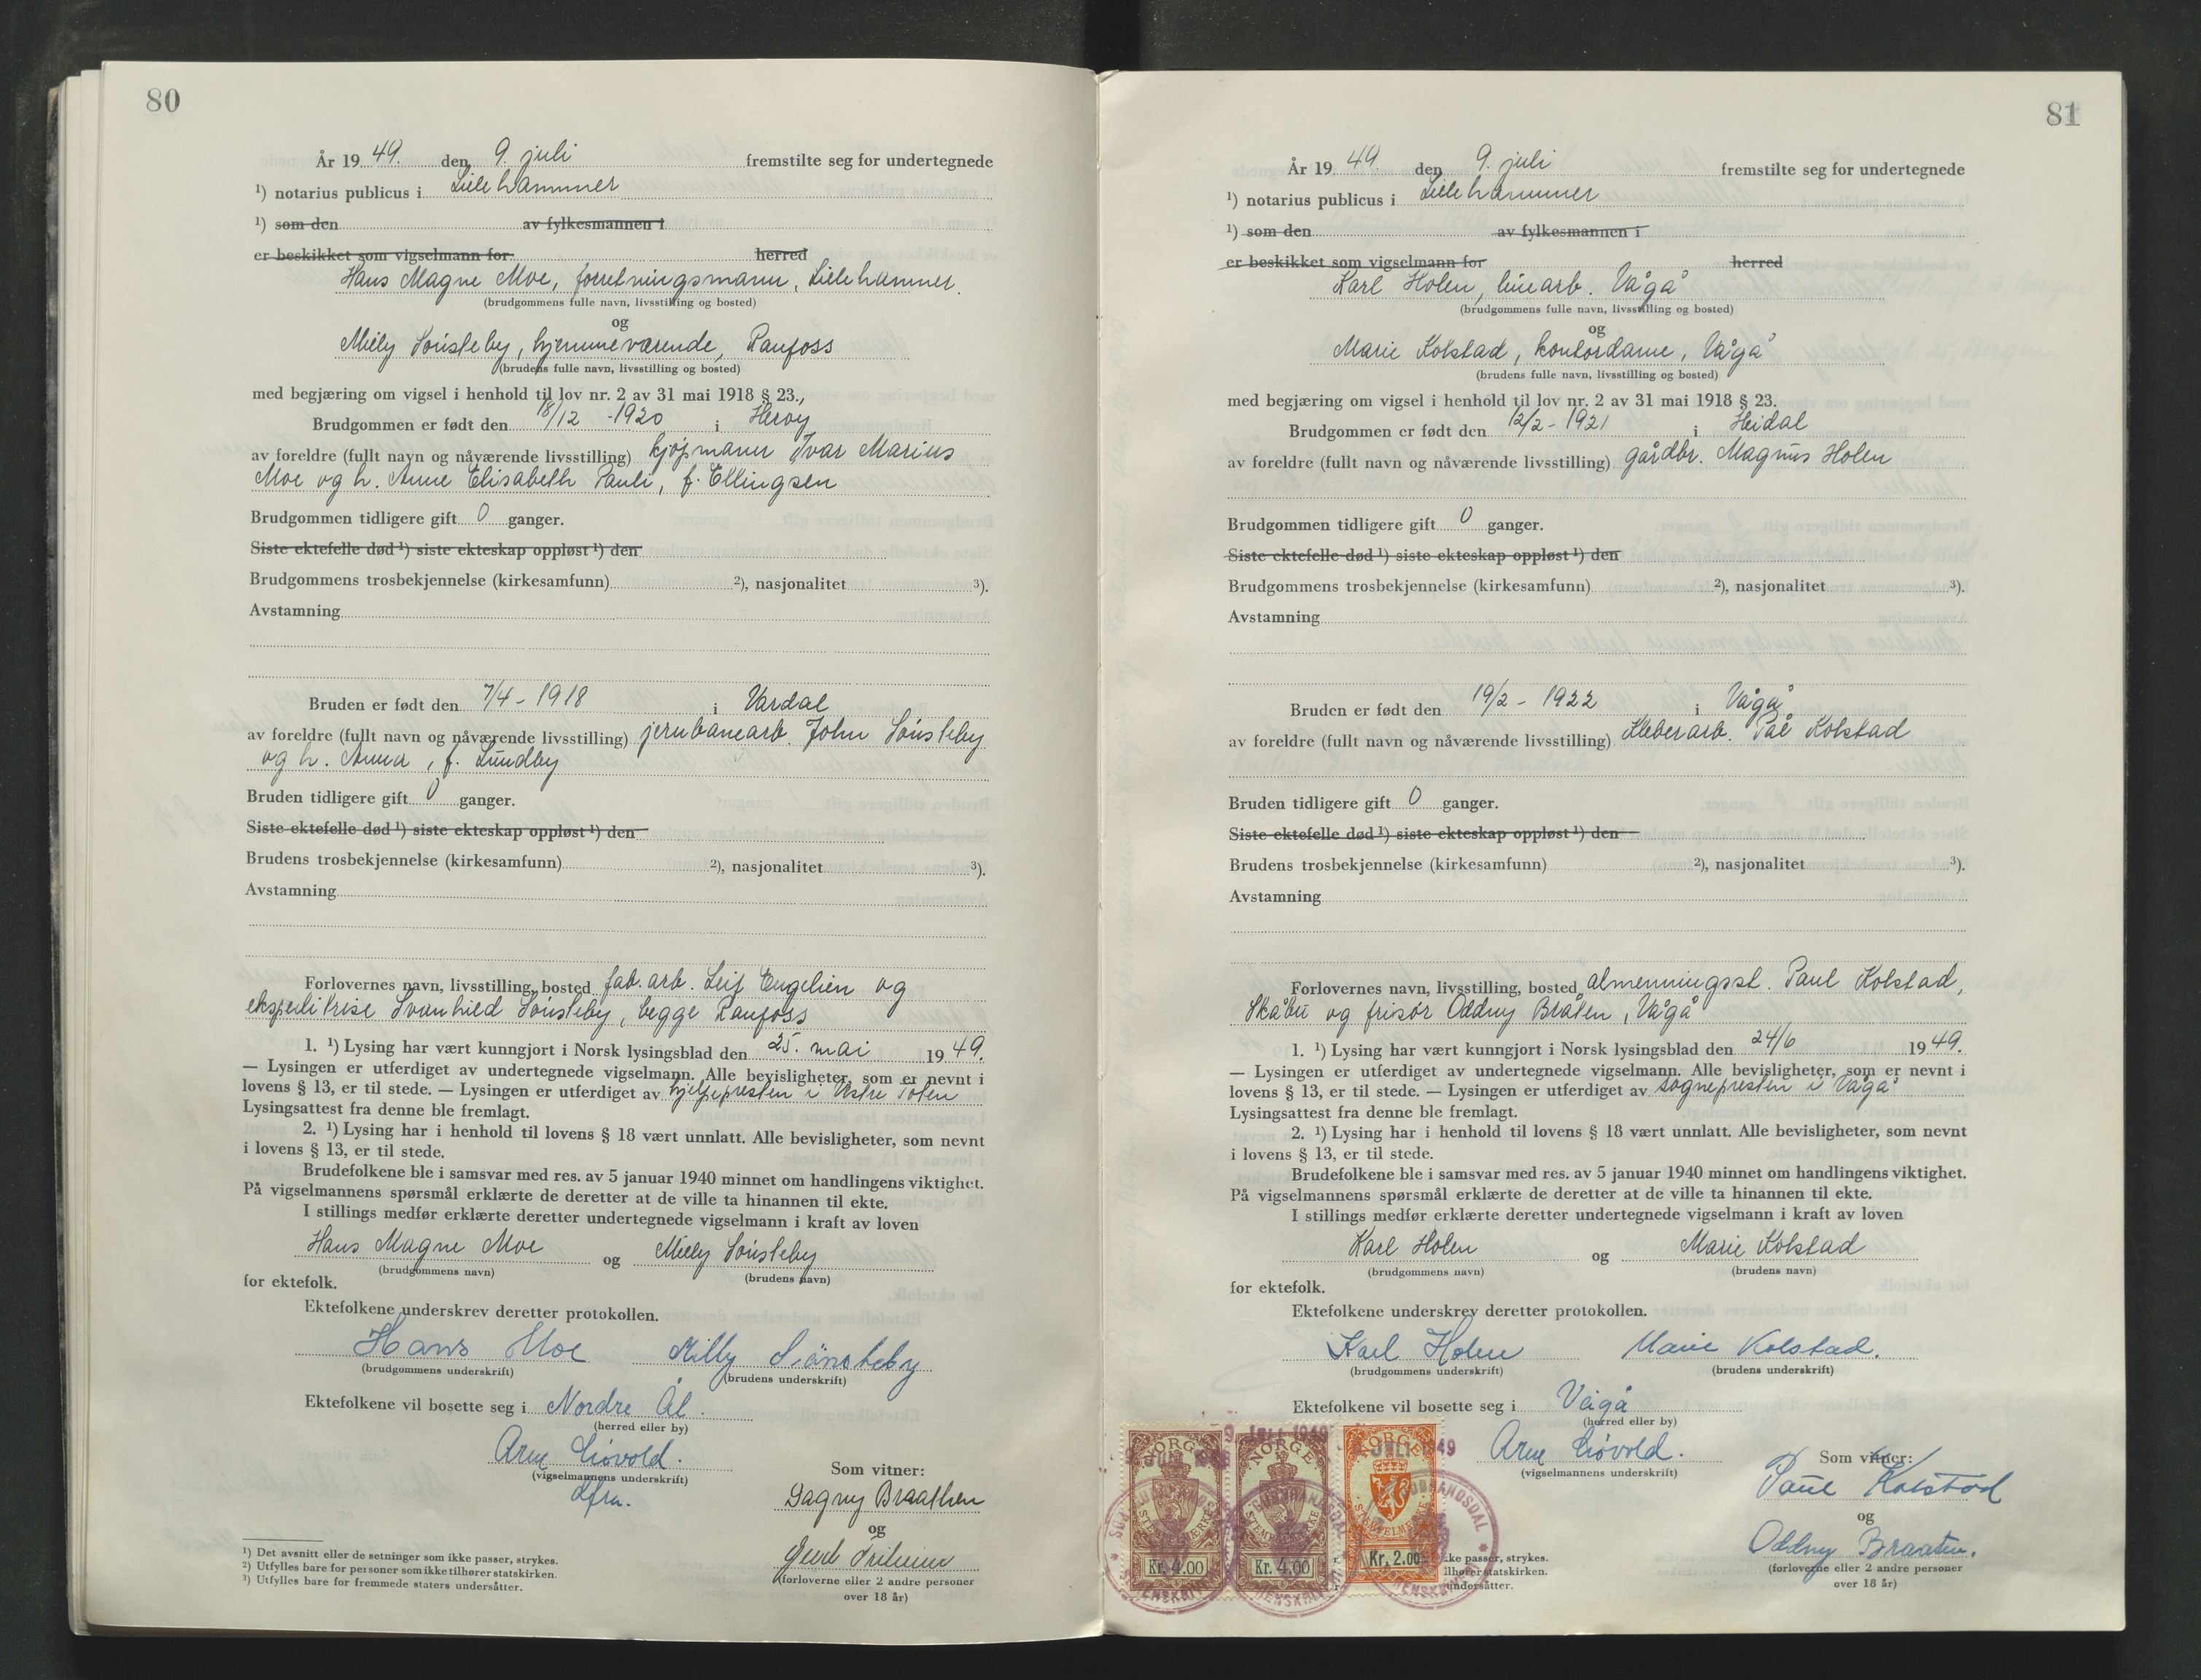 80
År 19 49. den 9. juli fremstilte seg for undertegnede
¹) notarius publicus i Lillehammer
¹) som den av fylkesmannen i
er beskikket som vigselmann for herred
Hans Magne Moe, forretningsmann, Lillehammer.
(brudgommens fulle navn, livsstilling og bosted)
og
Milly Sønsteby, hjemmeværende, Raufoss
(brudens fulle navn, livsstilling og bosted)
med begjæring om vigsel i henhold til lov nr. 2 av 31 mai 1918 § 23.,
Brudgommen er født den 18/12 - 1920 i Herøy
av foreldre (fullt navn og nåværende livsstilling) kjøpmann Ivar Marius
Moe og h. Anne Elisabeth Pauli, f. Ellingsen
Brudgommen tidligere gift 0 ganger.
Siste ektefelle død ¹) siste ekteskap oppløst ¹) den
Brudgommens trosbekjennelse (kirkesamfunn) ²), nasjonalitet ³).
Avstamning
Bruden er født den 7/4 - 1918 i Vardal
av foreldre (fullt navn og nåværende livsstilling) jernbanearb. John Sønsteby
og h. Anna, f. Lundby
Bruden tidligere gift 0 ganger.
Siste ektefelle død ¹) siste ekteskap oppløst ¹) den
Brudens trosbekjennelse (kirkesamfunn) ²), nasjonalitet ³).
Avstamning
Forlovernes navn, livsstilling, bosted fab.arb. Leif Engelien og
ekspeditrise Svanhild Sønsteby, begge Raufoss
1. ¹) Lysing har vært kunngjort i Norsk lysingsblad den 25. mai 19 49.
— Lysingen er utferdiget av undertegnede vigselmann. Alle bevisligheter, som er nevnt i
lovens § 13, er til stede. — Lysingen er utferdiget av hjelpepresten i Vestre Toten
Lysingsattest fra denne ble fremlagt.
2. ¹) Lysing har i henhold til lovens § 18 vært unnlatt. Alle bevisligheter, som nevnt
i lovens § 13, er til stede.
Brudefolkene ble i samsvar med res. av 5 januar 1940 minnet om handlingens viktighet.
På vigselmannens spørsmål erklærte de deretter at de ville ta hinannen til ekte.
I stillings medfør erklærte deretter undertegnede vigselmann i kraft av loven
Hans Magne Moe og Milly Sønsteby
(brudgommens navn) (brudens navn)
for ektefolk.
Ektefolkene underskrev deretter protokollen.
Hans Moe Milly Sønsteby
(brudgommens underskrift) (brudens underskrift)
Ektefolkene vil bosette seg i Nordre Ål.
(herred eller by)
Arne Løvold.
(vigselmannens underskrift)
dfm.
Som vitner:
Dagny Braathen
og
(forloverne eller 2 andre personer
over 18 år)
¹) Det avsnitt eller de setninger som ikke passer, strykes.
²) Utfylles bare for personer som ikke tilhører statskirken.
³) Utfylles bare for fremmede staters undersåtter.
81
År 19 49. den 9. juli fremstilte seg for undertegnede
¹) notarius publicus i Lillehammer
¹) som den av fylkesmannen i
er beskikket som vigselmann for herred
Karl Holen, linearb. Vågå
(brudgommens fulle navn, livsstilling og bosted)
og
Marie Kolstad, kontordame, Vågå
(brudens fulle navn, livsstilling og bosted)
med begjæring om vigsel i henhold til lov nr. 2 av 31 mai 1918 § 23.
Brudgommen er født den 12/2 - 1921 i Heidal
av foreldre (fullt navn og nåværende livsstilling) gårdbr. Magnus Holen
Brudgommen tidligere gift 0 ganger.
Siste ektefelle død ¹) siste ekteskap oppløst ¹) den
Brudgommens trosbekjennelse (kirkesamfunn) ²), nasjonalitet ³).
Avstamning
Bruden er født den 19/2 - 1922 i Vågå
av foreldre (fullt navn og nåværende livsstilling) Kleberarb. Pål Kolstad
Bruden tidligere gift 0 ganger.
Siste ektefelle død ¹) siste ekteskap oppløst ¹) den
Brudens trosbekjennelse (kirkesamfunn) ²), nasjonalitet ³).
Avstamning
Forlovernes navn, livsstilling, bosted almenningsst. Paul Kolstad,
Skåbu og frisør Oddny Bråten, Vågå
1. ¹) Lysing har vært kunngjort i Norsk lysingsblad den 24/6 19 49.
— Lysingen er utferdiget av undertegnede vigselmann. Alle bevisligheter, som er nevnt i
lovens § 13, er til stede. — Lysingen er utferdiget av sognepresten i Vågå
Lysingsattest fra denne ble fremlagt.
2. ¹) Lysing har i henhold til lovens § 18 vært unnlatt. Alle bevisligheter, som nevnt
i lovens § 13, er til stede.
Brudefolkene ble i samsvar med res. av 5 januar 1940 minnet om handlingens viktighet.
På vigselmannens spørsmål erklærte de deretter at de ville ta hinannen til ekte.
I stillings medfør erklærte deretter undertegnede vigselmann i kraft av loven
Karl Holen og Marie Kolstad
(brudgommens navn) (brudens navn)
for ektefolk.
Ektefolkene underskrev deretter protokollen.
Karl Holen Marie Kolstad.
(brudgommens underskrift) (brudens underskrift)
Ektefolkene vil bosette seg i Vågå
(herred eller by)
Arne Løvold.
(vigselmannens underskrift)
Som vitner:
Paul Kolstad
og
Oddny Braaten.
(forloverne eller 2 andre personer
over 18 år)
9. JULI 1949
NORGE NORGE NORGE
STEMPELMERKE
Kr. 4.00 Kr. 4.00 Kr. 2.00
ke passer, strykes.
lhører statskirken.
undersåtter.